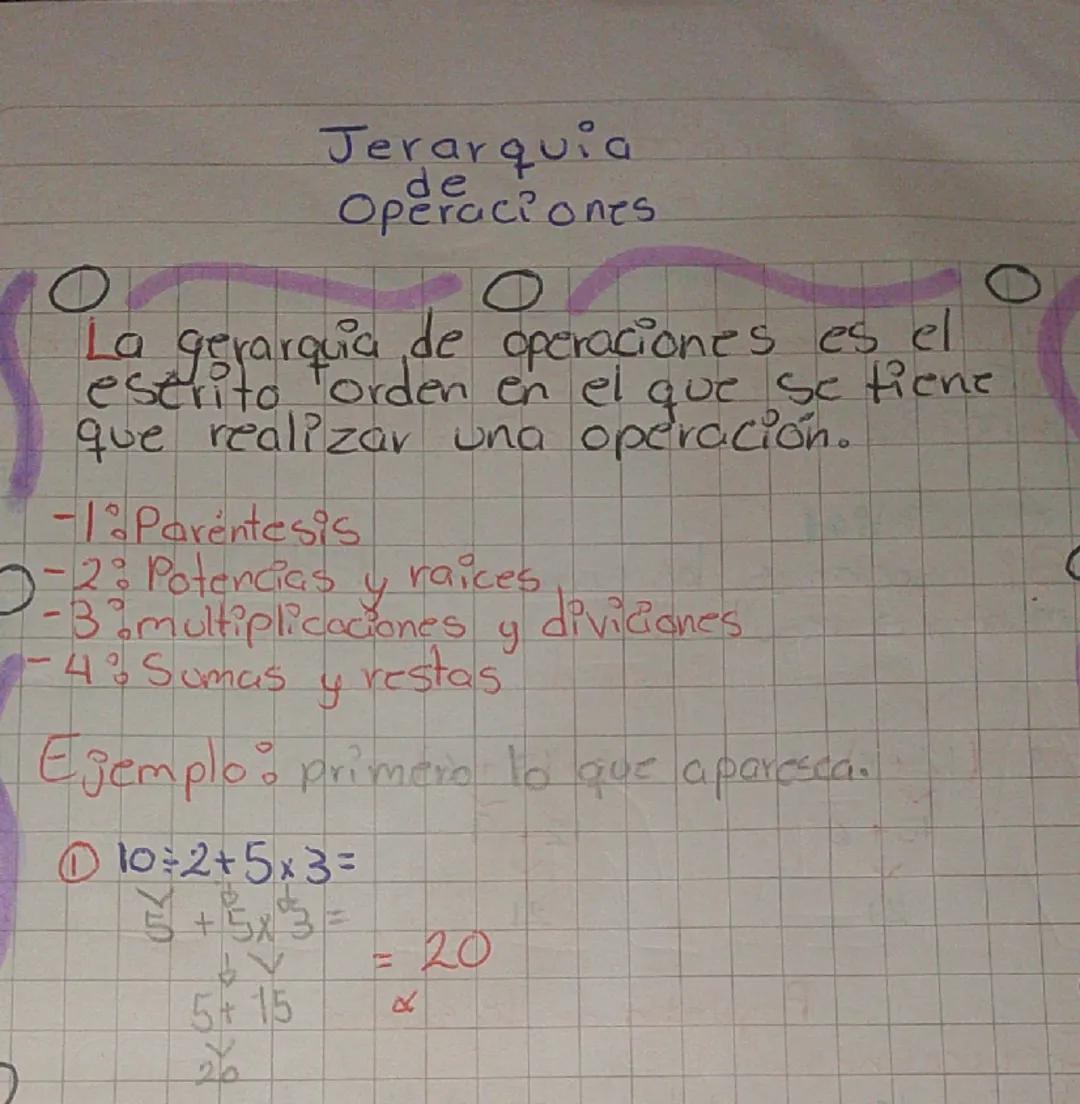 Jerarquia
de
Operaciones
La gerarquia de operaciones es el
escrito orden en el que se tiene
que realizar una operación.
-1: Paréntesis
-2: Potencias y raices
-3: multiplicaciones y diviciones
-4: Sumas y restas
Ejemplo: primero lo que aparesca.
① 10÷2+5x3=
5 + 5x3=
= 20
5+ 15
20